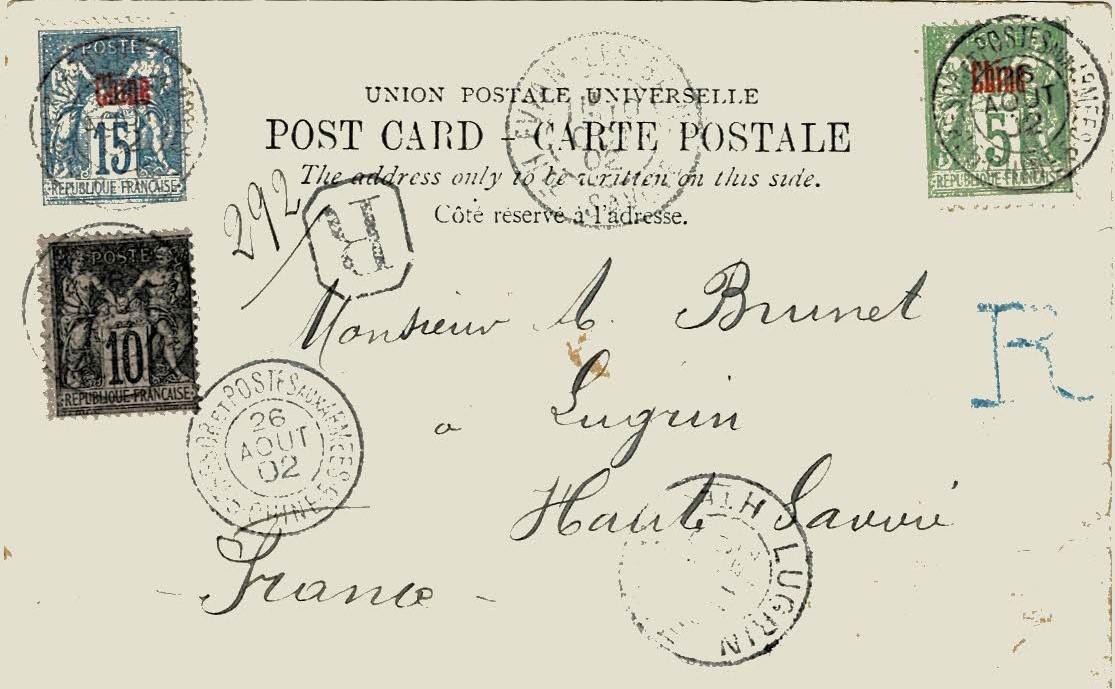 POSTES
Chine
15
REPUBLIQUE FRANÇAISE
POSTES
10
REPUBLIQUE FRANÇAISE
Chine
5
REPUBLIQUE FRANÇAISE
26
AOUT
02
UNION POSTALE UNIVERSELLE
POST CARD - CARTE POSTALE
The address only to be written on this side.
Côté réservé à l'adresse.
EVIAN-LES-BAINS
292
R
Monsieur A. Brunet
à Lugrin
Haute Savoie
France
R
TRESOR ET POSTES AUX ARMEES
26
AOUT
02
CHINE
LUGRIN